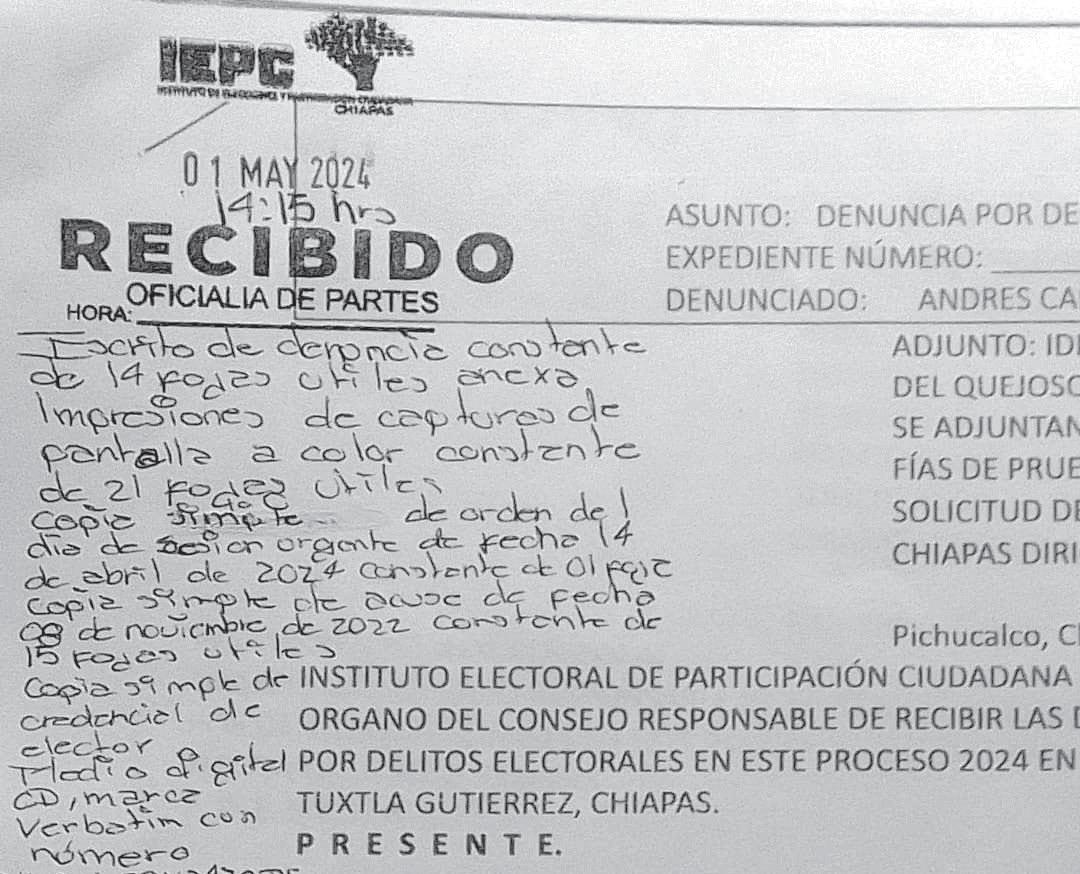 IEPC
INSTITUTO DE ELECCIONES Y PARTICIPACIÓN CIUDADANA
CHIAPAS
01 MAY 2024
14:15 hrs
RECIBIDO
OFICIALIA DE PARTES
HORA:
ASUNTO: DENUNCIA POR DE
EXPEDIENTE NÚMERO:
DENUNCIADO: ANDRES CA
ADJUNTO: IDE
DEL QUEJOSO
SE ADJUNTAN
FÍAS DE PRUE
SOLICITUD DE
CHIAPAS DIRI
Pichucalco, C
Escrito de denuncia constante
de 14 fojas utiles anexa
Impresiones de capturas de
pantalla a color constante
de 21 fojas utiles
copia simple de orden del
dia de sesion urgente de fecha 14
de abril de 2024 constante de 01 foja
copia simple de acuse de fecha
08 de noviembre de 2022 constante de
15 fojas utiles
Copia simple de
credencial de
elector
Medio digital
CD, marca
Verbatim con
número
INSTITUTO ELECTORAL DE PARTICIPACIÓN CIUDADANA
ORGANO DEL CONSEJO RESPONSABLE DE RECIBIR LAS
POR DELITOS ELECTORALES EN ESTE PROCESO 2024 EN
TUXTLA GUTIERREZ, CHIAPAS.
P R E S E N T E.